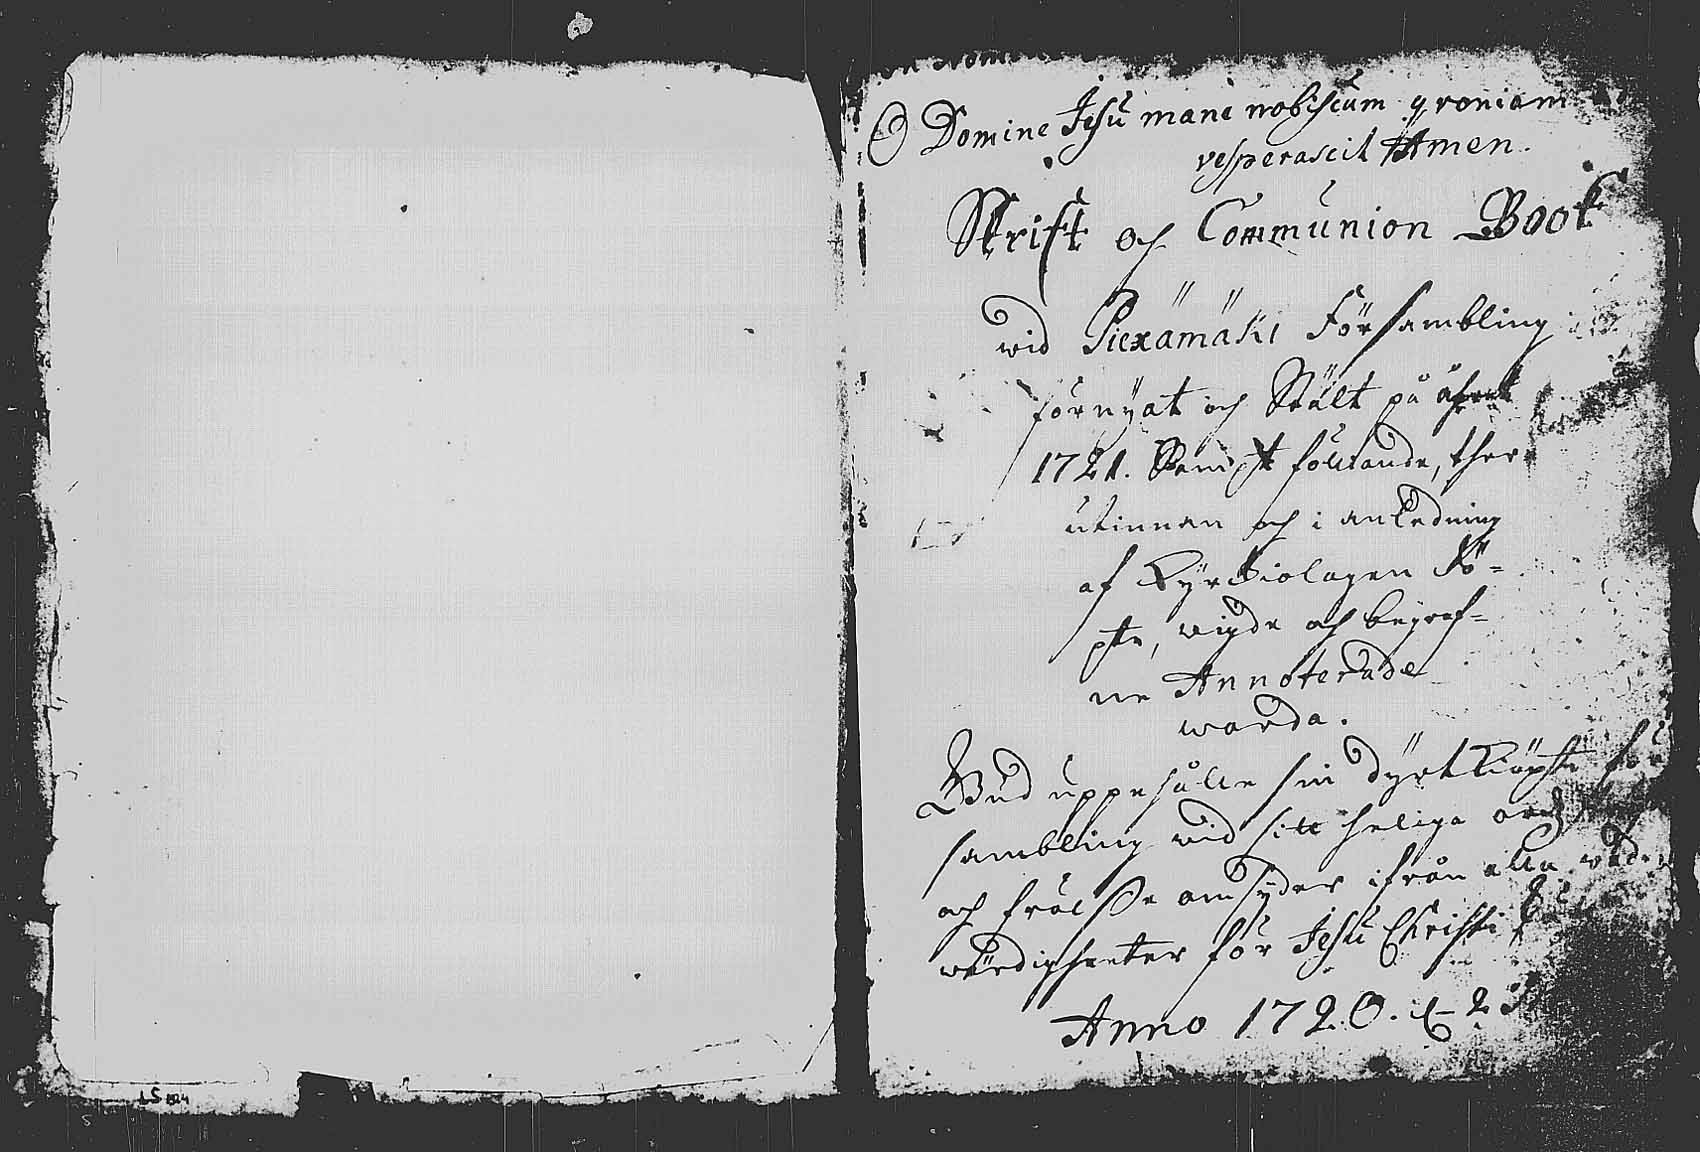 O Domine Jesu mane nobiscum qvoniam
vesperascit Amen.
Skrift och Communion Book
wid Piexämäki Försambling
förnyat och Stält på åhret
1721. Sampt följande, ther
utinnan och i anledning
af Kyrkiolagen Dö=
pte, wigde och begraf=
ne Annoterade
warda.
Gud uppehålle sin dyrt kiöpte för
sambling wid sitt heliga ord
och frälsse omsyder ifrån alla
wärdigheeter för Jesu Christi
Anno 1720. d. 2
LS